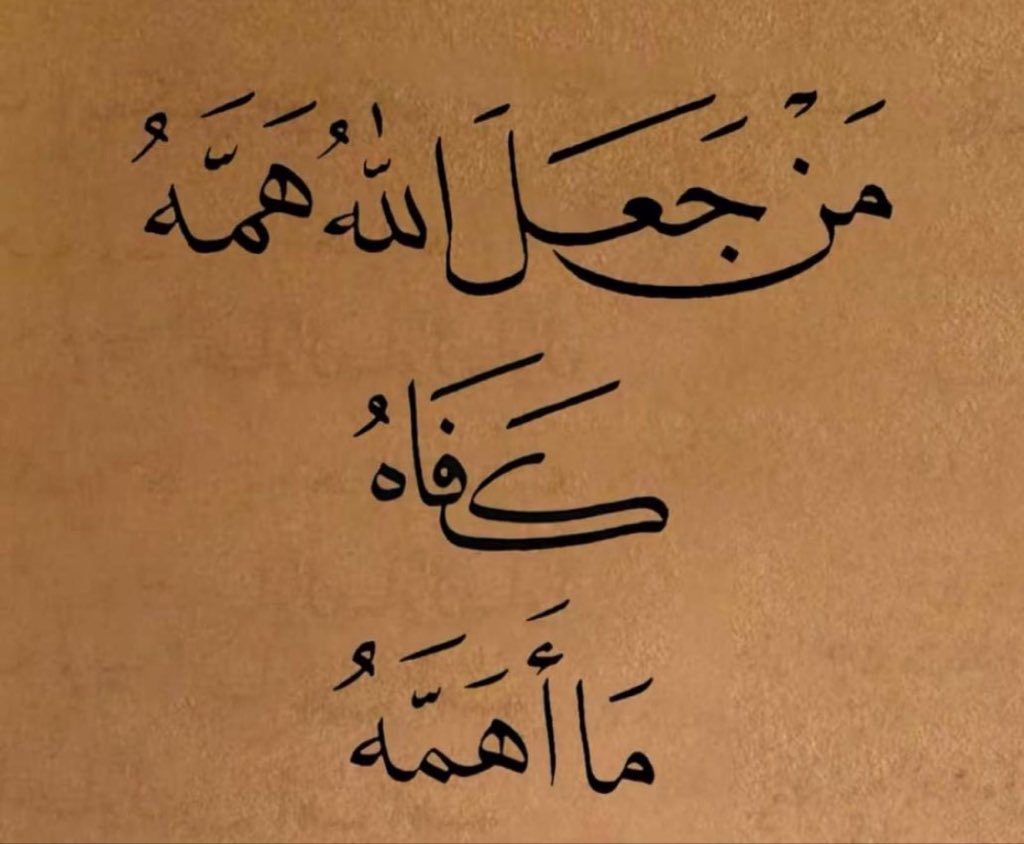 مَنْ جَعَلَ اللّٰهُ هَمَّهُ
كَفَاهُ
مَا أَهَمَّهُ